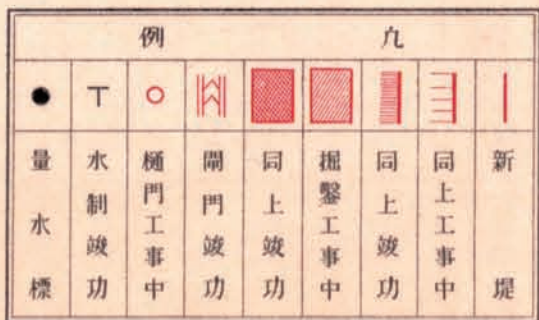 凡例
新堤
同上工事中
同上竣功
掘鑿工事中
同上竣功
閘門竣功
樋門工事中
水制竣功
量水標